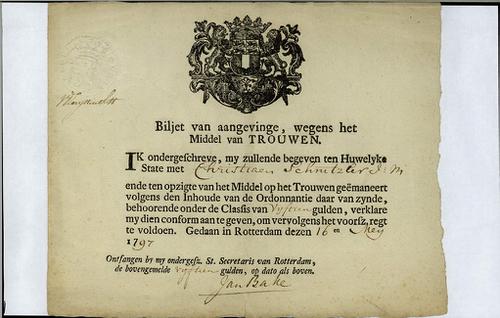 Biljet van aangevinge, wegens het
Middel van TROUWEN.
IK ondergeſchreve, my zullende begeven ten Huwelyke
State met Christiaen Schnitzler J: M
ende ten opzigte van het Middel op het Trouwen geëmaneert
volgens den Inhoude van de Ordonnantie daar van zynde,
behoorende onder de Claſſis van Vyftien gulden, verklare
my dien conform aan te geven, om vervolgens het voorſz. regt
te voldoen. Gedaan in Rotterdam dezen 16en Mey
1797
Ontfangen by my ondergeſz. St. Secretaris van Rotterdam,
de bovengemelde vyftien gulden, op dato als boven.
Jan Bake